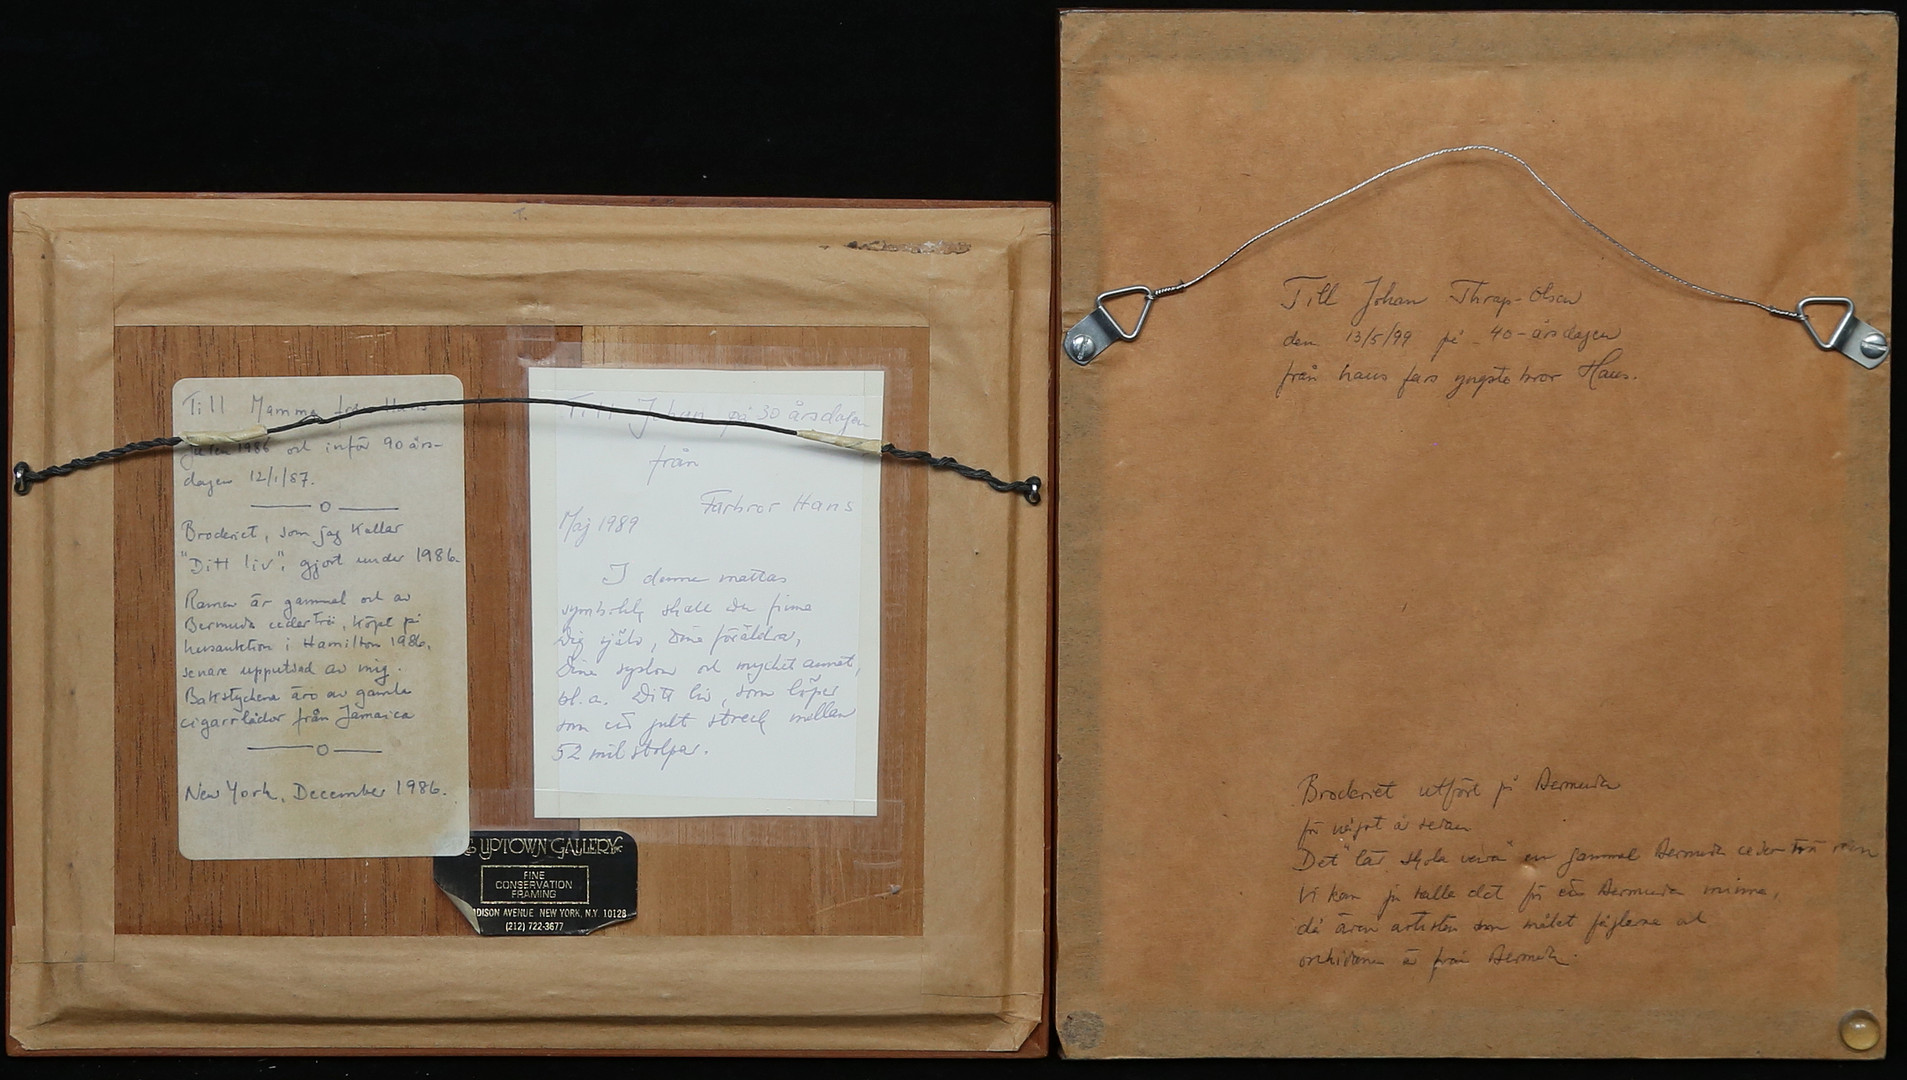 Till Mamma från Hans
Julen 1986 och inför 90 års-
dagen 12/1/87.
Broderiet, som jag kallar
"Ditt liv", gjort under 1986.
Ramen är gammal och av
Bermuda cederträ, köpt på
husauktion i Hamilton 1986,
senare upputsad av mig.
Bakstyckena äro av gamla
cigarrlådor från Jamaica
New York, December 1986.
Till Johan på 30 årsdagen
från
Farbror Hans
Maj 1989
I denna mattas
symbolik skall Du finna
Dig själv, Dina föräldrar,
Dina syskon och mycket annat,
bl.a. Ditt liv, som löper
som ett gult streck mellan
52 milstolpar.
UPTOWN GALLERY
FINE
CONSERVATION
FRAMING
DISON AVENUE NEW YORK, N.Y. 10128
(212) 722-3677
Till Johan Thrap-Olsen
den 13/5/99 på 40-årsdagen
från hans fars yngste bror Hans.
Broderiet utfört på Bermuda
för något år sedan
Det "lär skola vara" en gammal Bermuda cederträ ram
Vi kan ju kalla det för ett Bermuda minne,
då även artisten som målat fåglarna och
orkidéerna är från Bermuda.